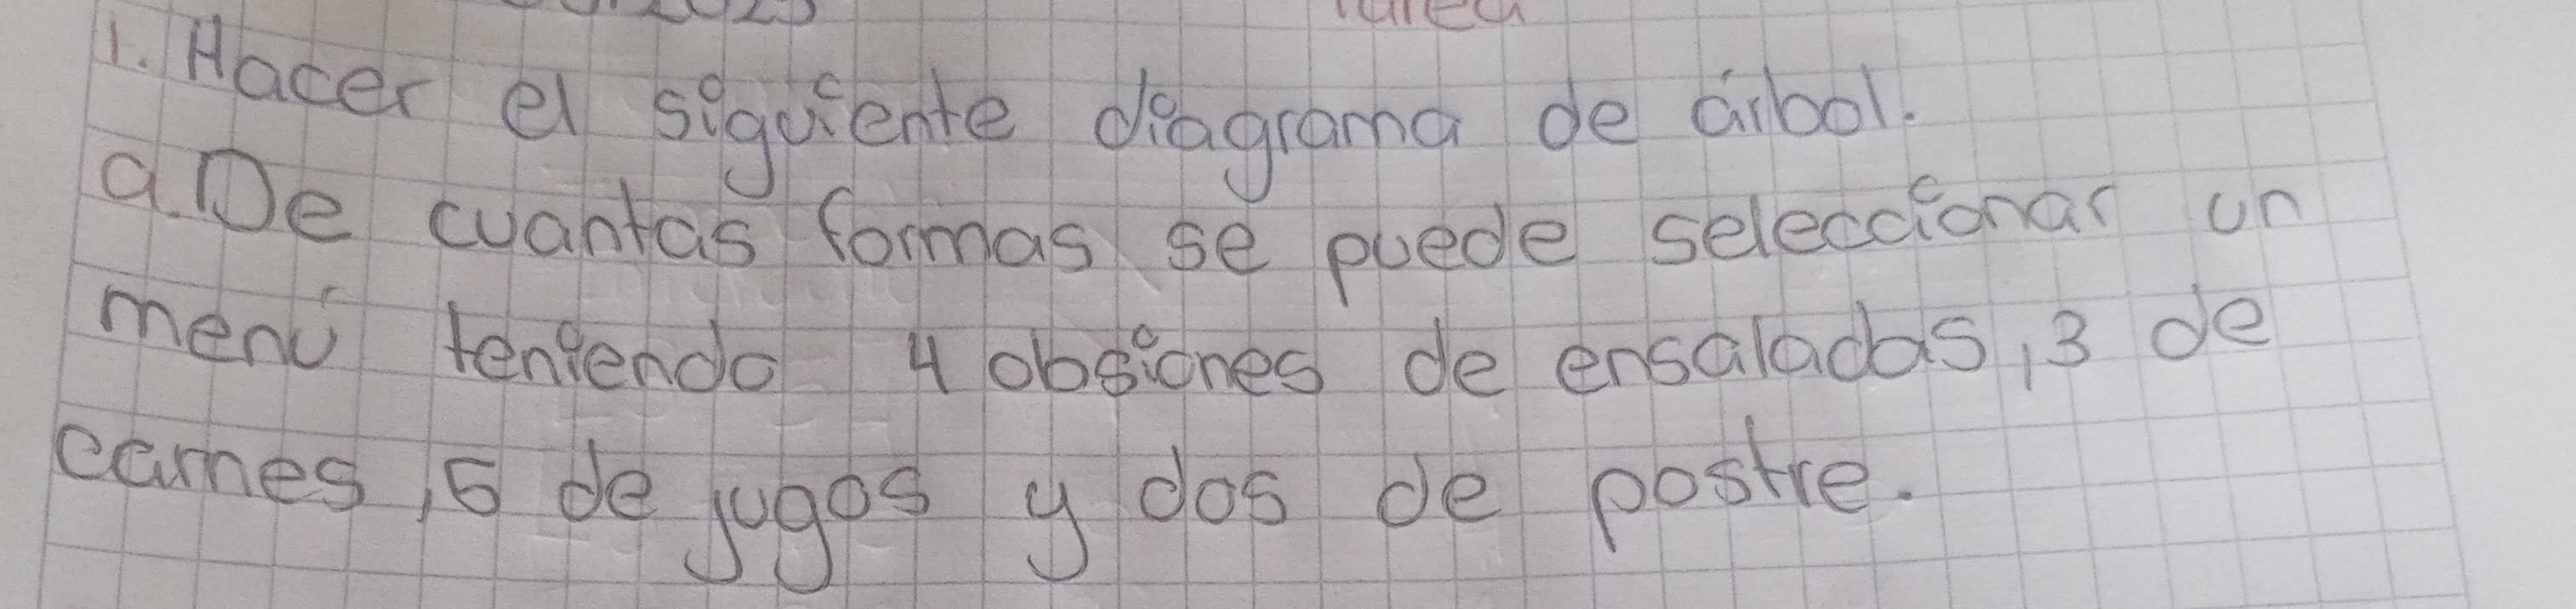 1. Hacer el siguiente diagrama de árbol.
a. De cuantas formas se puede seleccionar un
menú teniendo 4 obsiones de ensaladas, 3 de
carnes, 5 de jugos y dos de postre.